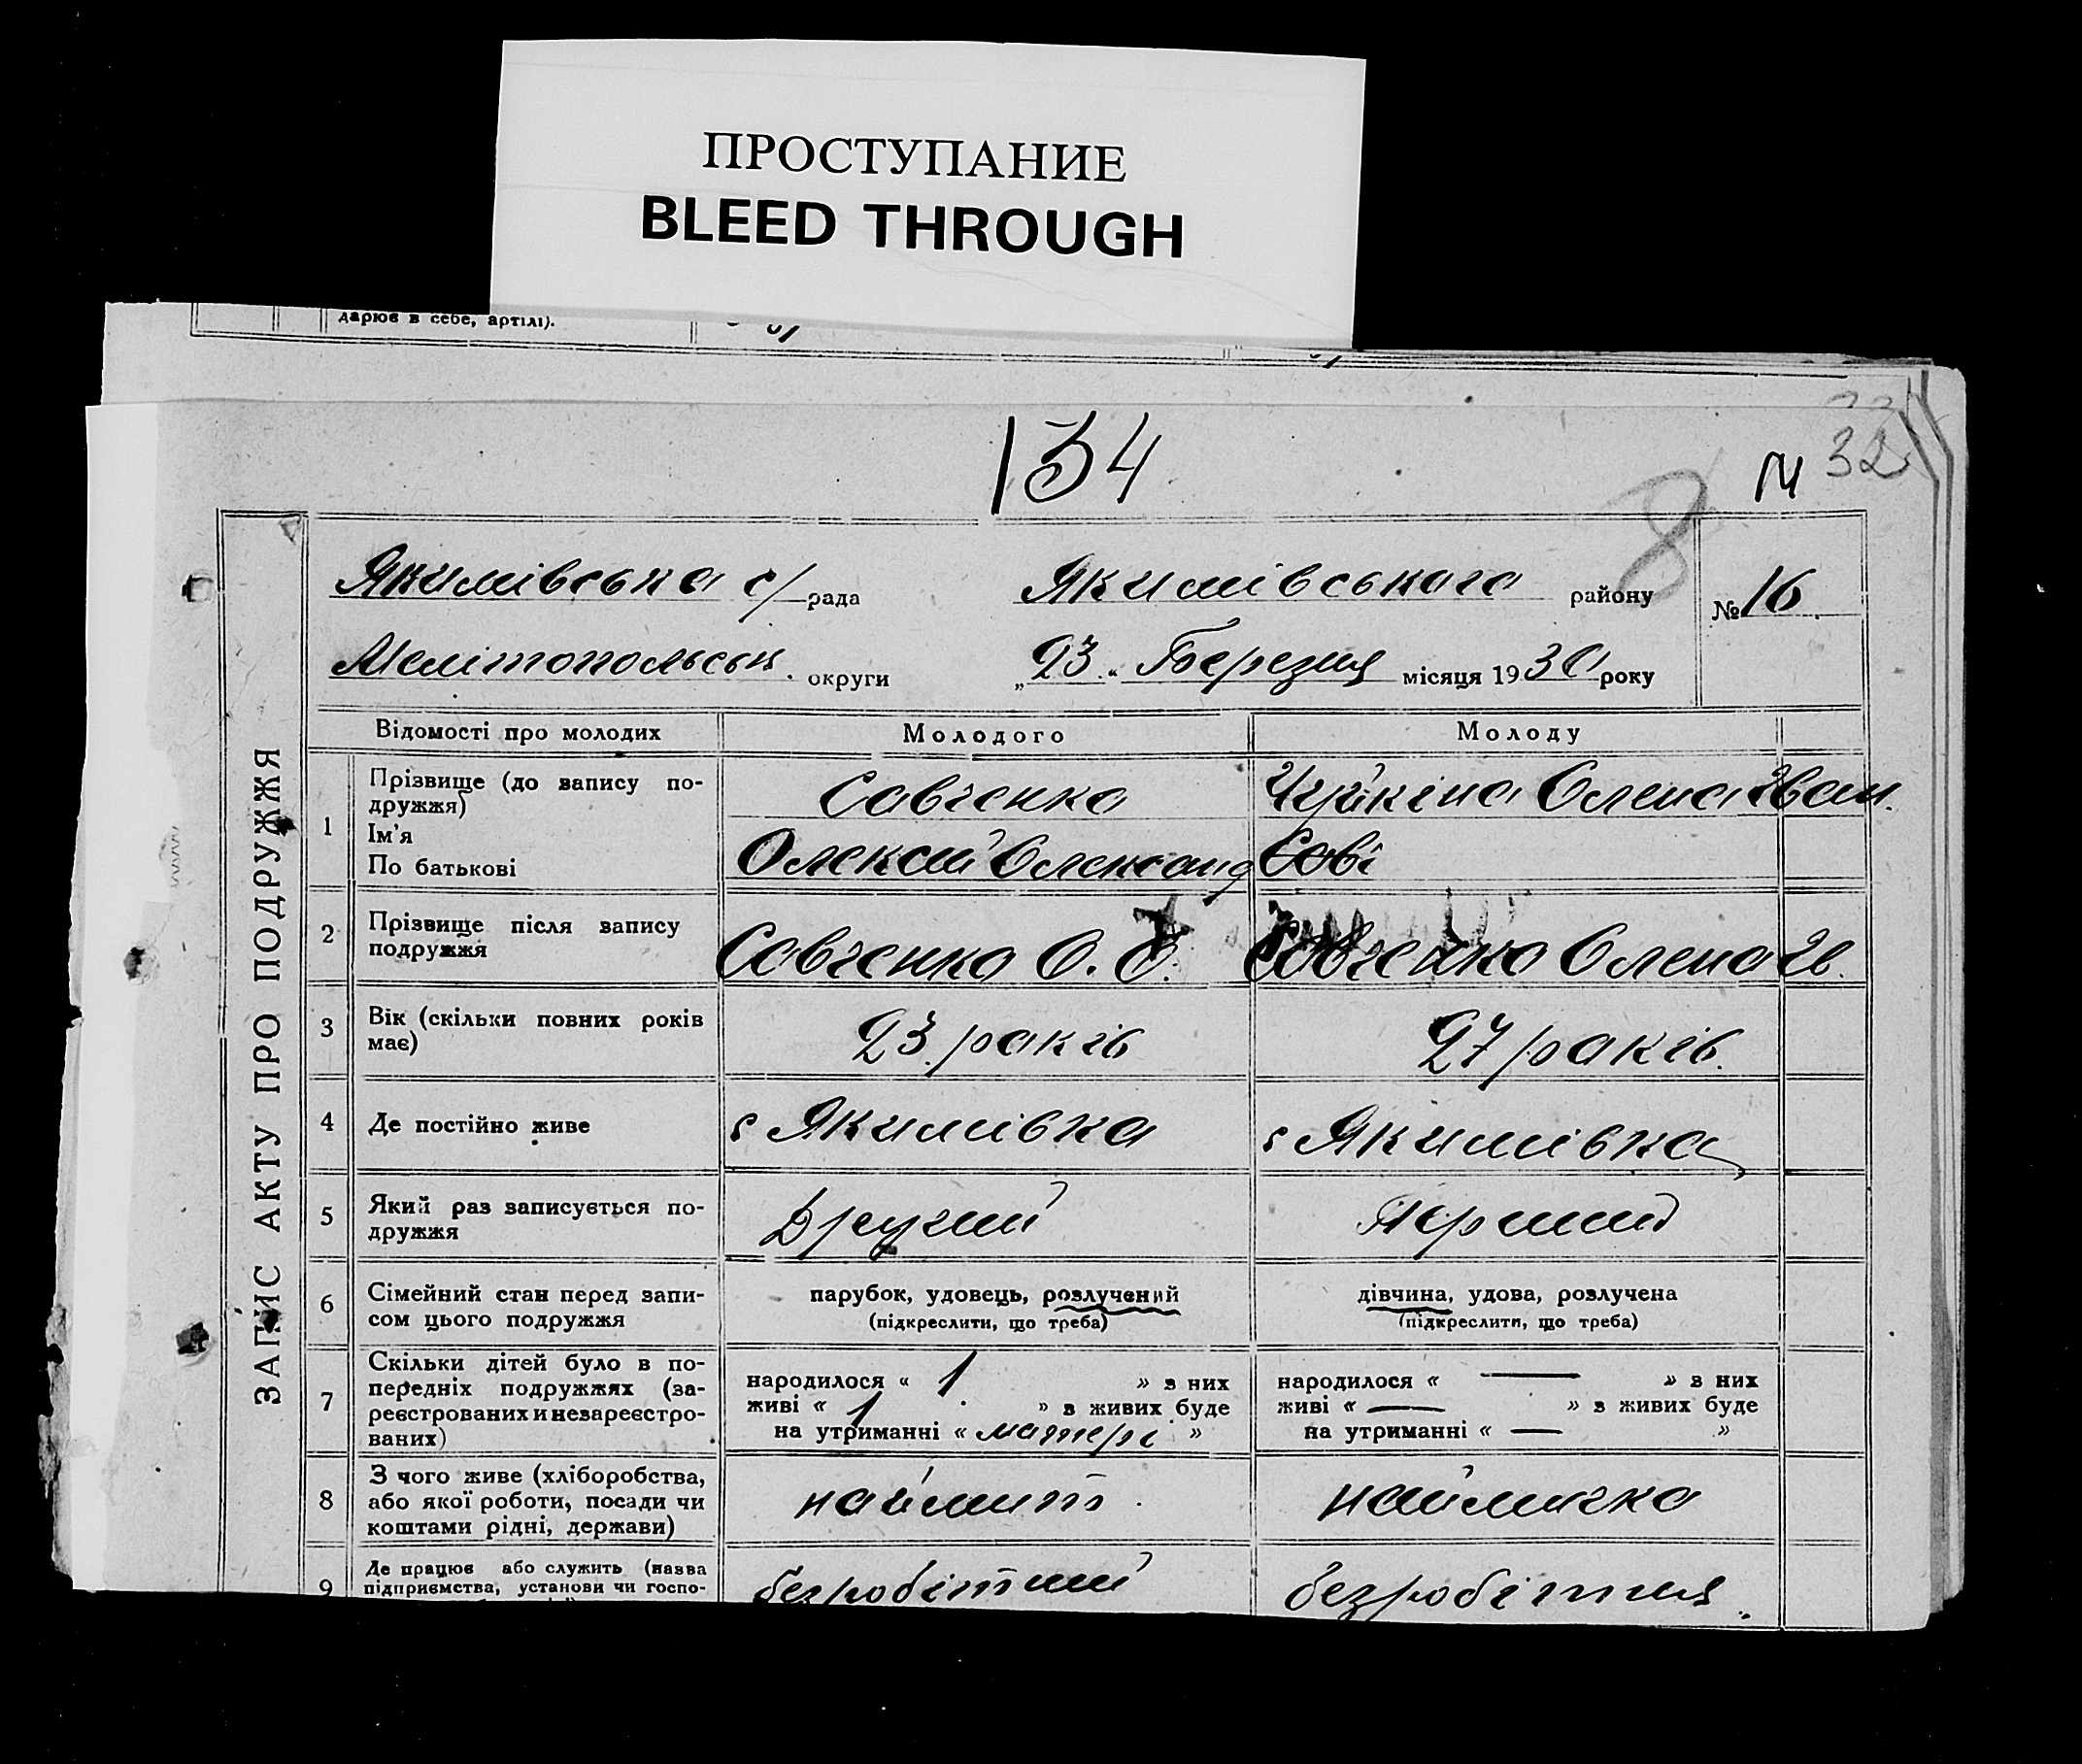 ПРОСТУПАНИЕ
BLEED THROUGH
дарює в себе, артілі).
134
32
14
8
ЗАПИС АКТУ ПРО ПОДРУЖЖЯ
Якимівська с/рада Якимівського району №16
Мелітопольськ. округи „23“ Березня місяця 1930 року
Відомості про молодих Молодого Молоду
1 Прізвище (до запису по-
дружжя)
Ім'я
По батькові
Савченко
Олексій Олександ
Чуйкіна Олена Іван.
Саві
2 Прізвище після запису
подружжя
Савченко О. О.
Савченко Олена Ів.
3 Вік (скільки повних років
має)
23 років
27 років.
4 Де постійно живе
с Якимівка
с Якимівка
5 Який раз записується по-
дружжя
Другий
Перший
6 Сімейний стан перед запи-
сом цього подружжя
парубок, удовець, розлучений
(підкреслити, що треба)
дівчина, удова, розлучена
(підкреслити, що треба)
7 Скільки дітей було в по-
передніх подружжях (за-
реєстрованих и незареєстро-
ваних)
народилося « 1 » з них
живі « 1 » з живих буде
на утриманні « матері »
народилося « — » з них
живі « — » з живих буде
на утриманні « — »
8 З чого живе (хліборобства,
або якої роботи, посади чи
коштами рідні, держави)
наймит
наймичка
9 Де працює або служить (назва
підприємства, установи чи госпо-
безробітний
безробітня.